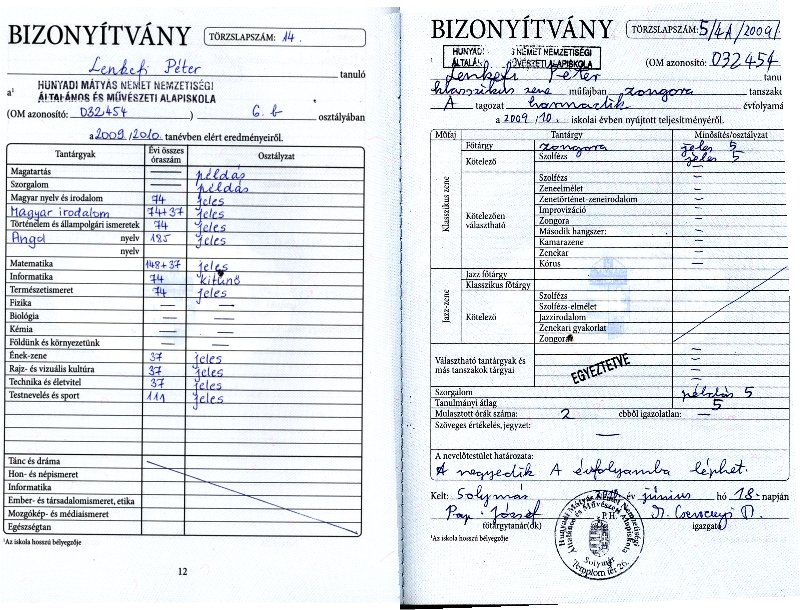 BIZONYÍTVÁNY
TÖRZSLAPSZÁM: 14.
Lenkefi Péter tanuló
a¹ HUNYADI MÁTYÁS NÉMET NEMZETISÉGI
ÁLTALÁNOS ÉS MŰVÉSZETI ALAPISKOLA
(OM azonosító: 032454) 6. b osztályában
a 2009/2010. tanévben elért eredményeiről.
Tantárgyak Évi összes óraszám: Osztályzat
Magatartás — példás
Szorgalom — példás
Magyar nyelv és irodalom 74 jeles
Magyar irodalom 74+37 jeles
Történelem és állampolgári ismeretek 74 jeles
Angol nyelv 185 jeles
nyelv
Matematika 148+37 jeles
Informatika 74 kitűnő
Természetismeret 74 jeles
Fizika — —
Biológia — —
Kémia — —
Földünk és környezetünk — —
Ének-zene 37 jeles
Rajz- és vizuális kultúra 37 jeles
Technika és életvitel 37 jeles
Testnevelés és sport 111 jeles
Tánc és dráma
Hon- és népismeret
Informatika
Ember- és társadalomismeret, etika
Mozgókép- és médiaismeret
Egészségtan
¹Az iskola hosszú bélyegzője
12
BIZONYÍTVÁNY
TÖRZSLAPSZÁM: 5/41/2009/
HUNYADI NÉMET NEMZETISÉGI
ÁLTALÁN MŰVÉSZETI ALAPISKOLA
(OM azonosító: 032454
Lenkefi Péter tanu
klasszikus zene műfajban zongora tanszak
A tagozat harmadik évfolyamá
a 2009/10. iskolai évben nyújtott teljesítményéről.
Műfaj Tantárgy Minősítés/osztályzat
Klasszikus zene
Főtárgy zongora jeles 5
Kötelező Szolfézs jeles 5
Kötelezően választható
Szolfézs —
Zeneelmélet —
Zenetörténet-zeneirodalom —
Improvizáció —
Zongora —
Második hangszer: —
Kamarazene —
Zenekar —
Kórus —
Jazz-zene
Jazz főtárgy
Klasszikus főtárgy
Kötelező
Szolfézs
Szolfézs-elmélet
Jazzirodalom
Zenekari gyakorlat
Zongora
Választható tantárgyak és
más tanszakok tárgyai
EGYEZTETVE
Szorgalom példás 5
Tanulmányi átlag 5
Mulasztott órák száma: 2 ebből igazolatlan: —
Szöveges értékelés, jegyzet:
—
A nevelőtestület határozata:
A negyedik A évfolyamba léphet.
Kelt: Solymár év június hó 18. napján
Pap József P.H.
főtárgytanár(dk) igazgató
Hunyadi Mátyás Német Nemzetiségi
Általános és Művészeti Alapiskola
Solymár
Templom tér 26.
¹Az iskola hosszú bélyegzője